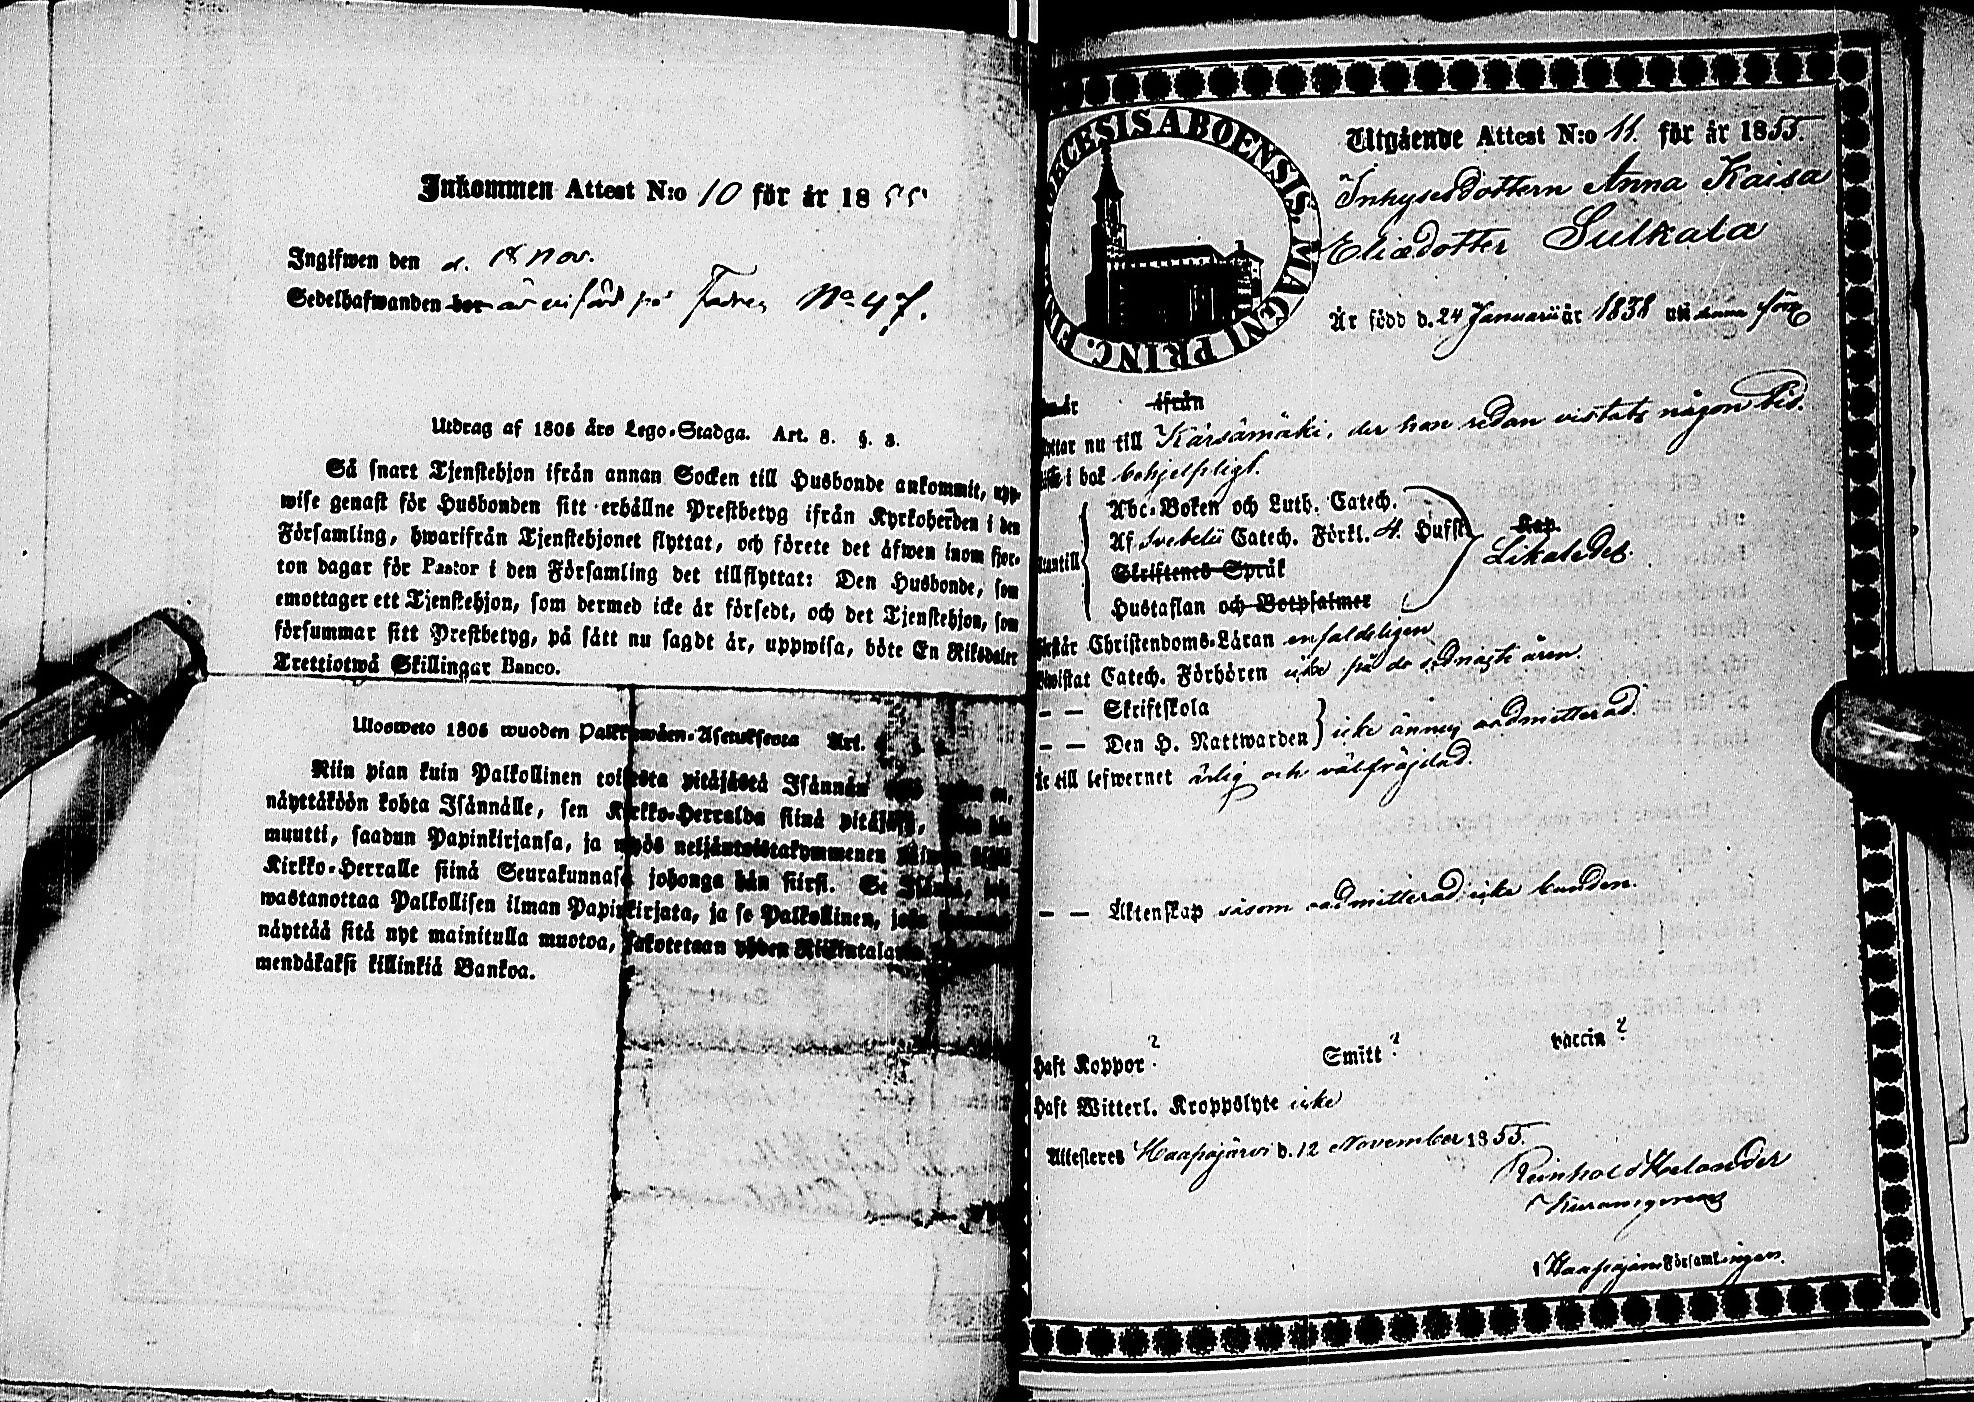 Inkommen Attest N:o 10 för år 1855
Ingifwen den d. 18 Nov.
Sedelhafwanden bor är införd på No 47.
Utdrag af 1805 års Lego-Stadga. Art. 8. §. 3.
Så snart Tjenstehjon ifrån annan Socken till Husbonde ankommit, upp-
wise genast för Husbonden sitt erhållne Prestbetyg ifrån Kyrkoherden i den
Församling, hwarifrån Tjenstehjonet flyttat, och förete det äfwen inom fjor-
ton dagar för Pastor i den Församling det tillflyttat: Den Husbonde, som
emottager ett Tjenstehjon, som dermed icke är försedt, och det Tjenstehjon, som
försummar sitt Prestbetyg, på sätt nu sagdt är, uppwisa, böte En Riksdaler
Trettiotwå Skillingar Banco.
Ulosweto 1805 wuoden Palkkawäen-Asetuksesta Art.
Niin pian kuin Palkollinen toisesta pitäjästä Isännän
näyttäköön kohta Isännälle, sen Kirkko-Herralda siinä pitäjäsä,
muutti, saadun Papinkirjansa, ja myös neljäntoistakymmenen
Kirkko-Herralle siinä Seurakunnasa johonga hän siirsi. Se
wastanottaa Palkollisen ilman Papinkirjata, ja se Palkollinen, joka
näyttää sitä nyt mainitulla muotoa, sakotetaan yhden Riikintalarin
mendäkaksi killinkiä Bankoa.
DIOECESIS ABOENSIS. MAGNI PRINC. FIN
Utgående Attest N:o 11. för år 1855
Inhysesdottern Anna Kaisa
Eliædotter Sulkala
Är född d. 24 Januarii år 1838
ifrån
nu till Kärsämäki, der hon redan vistats någon tid.
i bok behjelpligt.
Abc-Boken och Luth. Catech.
Af Svebelii Catech. Förkl. 4. Hufst. Kap.
Likaledes.
Skriftenes Språk
Hustaflan och Botpsalmer
Förstår Christendoms-Läran enfaldeligen
Bewistat Catech. Förhören icke på de sednaste åren.
— — Skriftskola
— — Den H. Nattwarden } icke ännu admitterad.
Är till lefwernet ärlig och välfräjdad.
— — Äktenskap såsom oadmitterad icke bunden.
Haft Koppor ? Smitt ? vaccin ?
Haft Witterl. Kroppslyte icke
Attesteres Haapajärvi d. 12 November 1855.
Reinhold Helander
i Haapajärvi Församlingen.